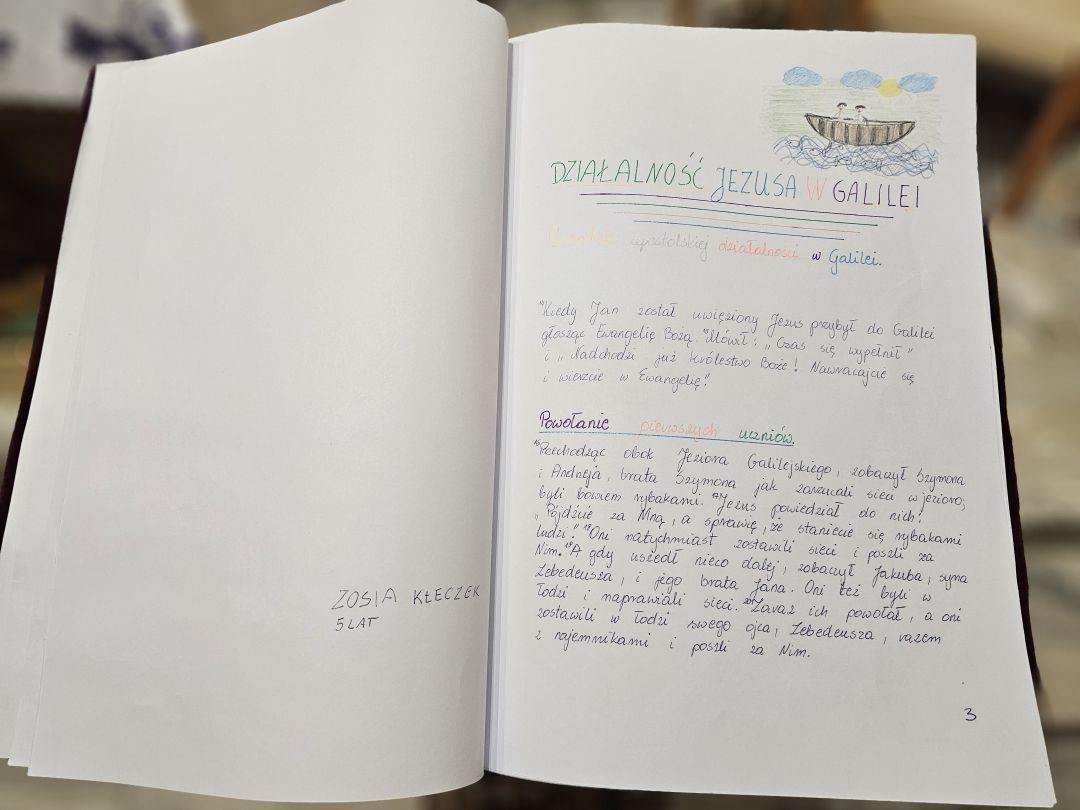 ZOSIA KŁECZEK
5 LAT
DZIAŁALNOŚĆ JEZUSA W GALILEI
apostolskiej działalności w Galilei.
¹⁴Kiedy Jan został uwięziony Jezus przybył do Galilei
głosząc Ewangelię Bożą. ¹⁵Mówił: „Czas się wypełnił"
i „Nadchodzi już Królestwo Boże! Nawracajcie się
i wierzcie w Ewangelię".
Powołanie pierwszych uczniów.
¹⁶Przechodząc obok Jeziora Galilejskiego, zobaczył Szymona
i Andrzeja, brata Szymona jak zarzucali sieci w jezioro;
byli bowiem rybakami. ¹⁷Jezus powiedział do nich:
„Pójdźcie za Mną, a sprawię, że staniecie się rybakami
ludzi". ¹⁸Oni natychmiast zostawili sieci i poszli za
Nim. ¹⁹A gdy uszedł nieco dalej, zobaczył Jakuba, syna
Zebedeusza, i jego brata Jana. Oni też byli w
łodzi i naprawiali sieci. ²⁰Zaraz ich powołał, a oni
zostawili w łodzi swego ojca, Zebedeusza, razem
z najemnikami i poszli za Nim.
3